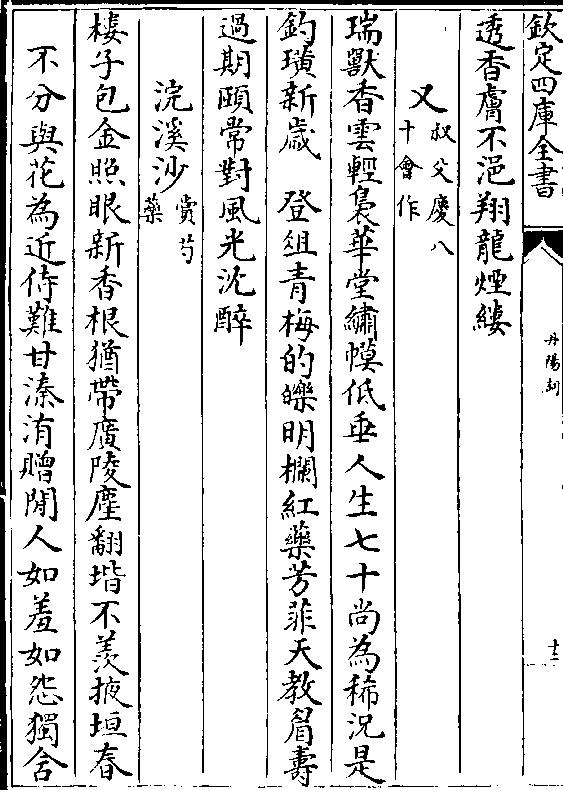 欽定四庫全書
丹陽詞
十二
透香膚不浥翔龍煙縷
又叔父慶八十會作
瑞獸香雲輕裊華堂繡幙低垂人生七十尚為稀況是
釣璜新歲　登俎青梅的皪明欄紅藥芳菲天教眉壽
過期頤常對風光沈醉
浣溪沙賞芍藥
樓子包金照眼新香根猶帶廣陵塵翻堦不羡掖垣春
不分與花為近侍難甘溱洧贈閒人如羞如怨獨含